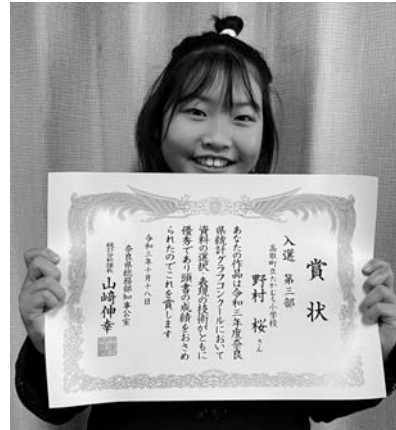 賞状
入選 第三部
高取町立たかむち小学校
野村 桜さん
あなたの作品は令和三年度奈良
県統計グラフコンクールにおいて
資料の選択・表現の技術がともに
優秀であり頭書の成績をおさめ
られたのでこれを賞します
令和三年十月十八日
奈良県総務部知事公室
統計分析課長 山﨑伸幸